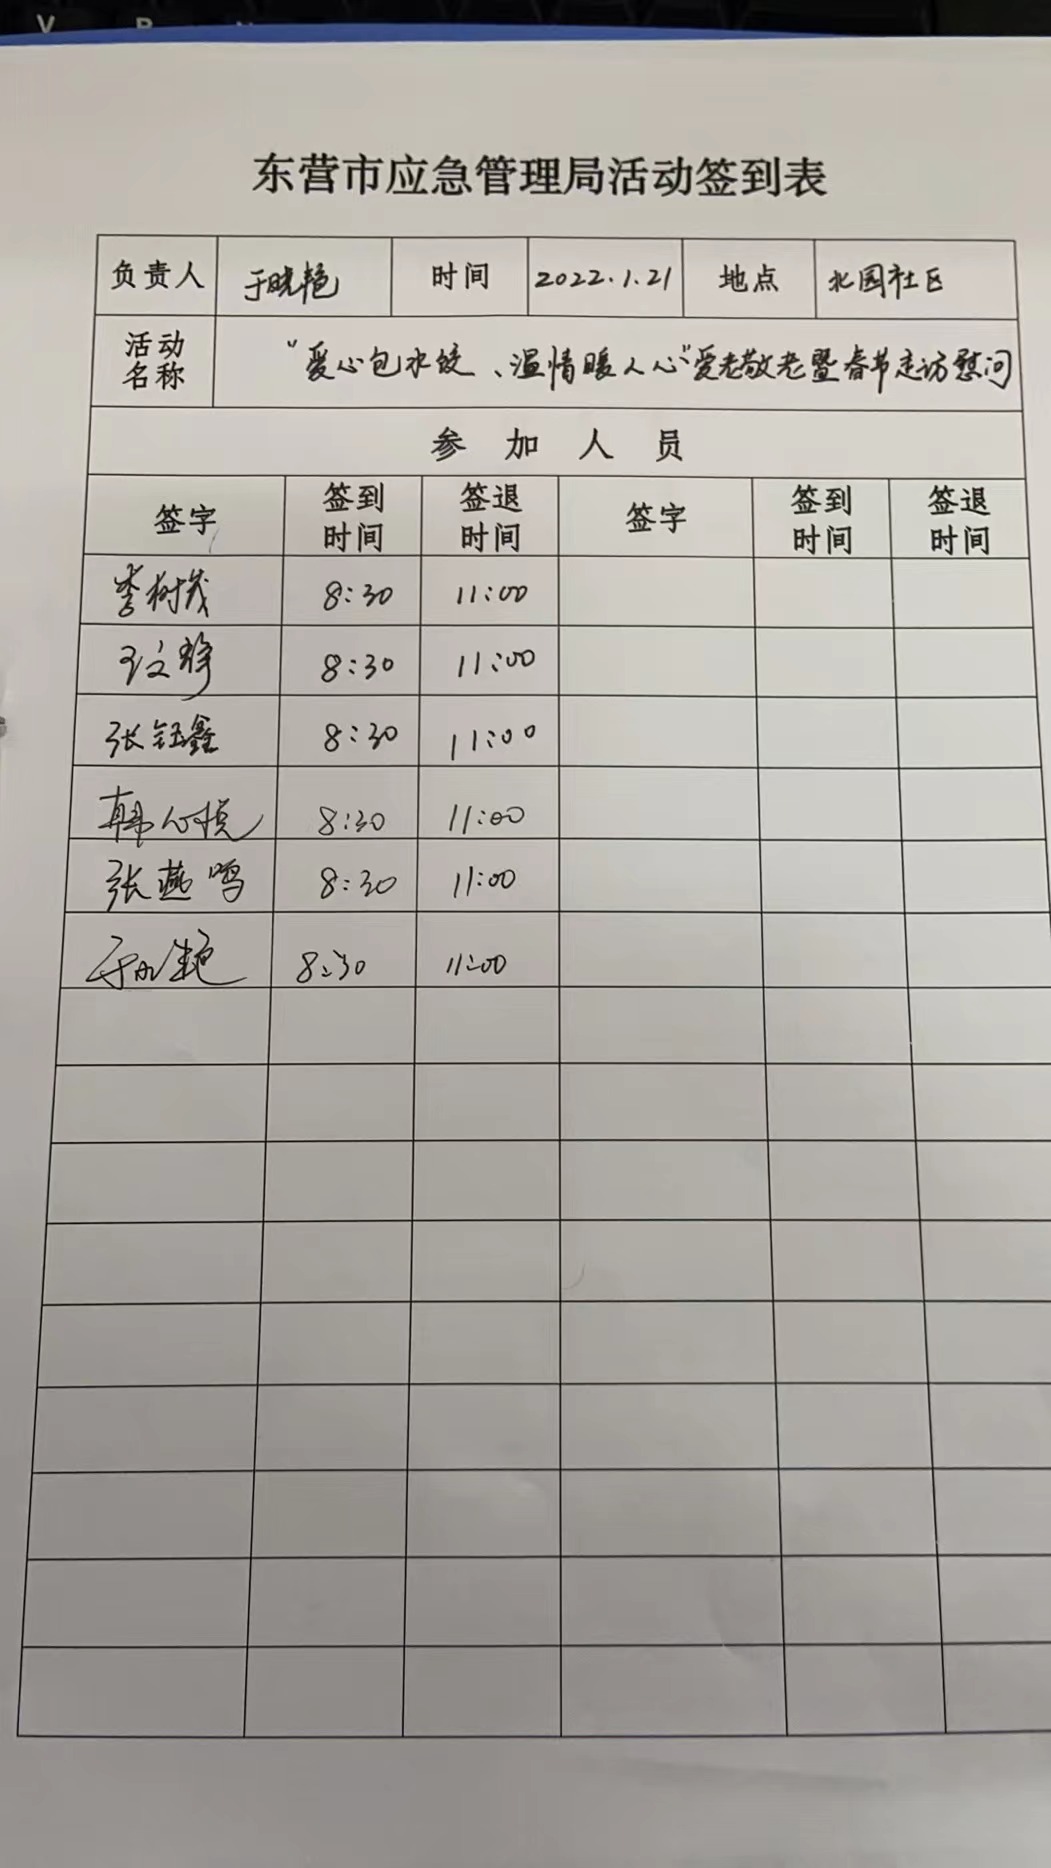 东营市应急管理局活动签到表
负责人 于晓艳 时间 2022.1.21 地点 北园社区
活动名称 “爱心包水饺、温情暖人心”爱老敬老暨春节走访慰问
参加人员
签字 签到时间 签退时间 签字 签到时间 签退时间
李树茂 8:30 11:00
王文静 8:30 11:00
张钰鑫 8:30 11:00
韩心悦 8:30 11:00
张燕鸣 8:30 11:00
于晓艳 8:30 11:00